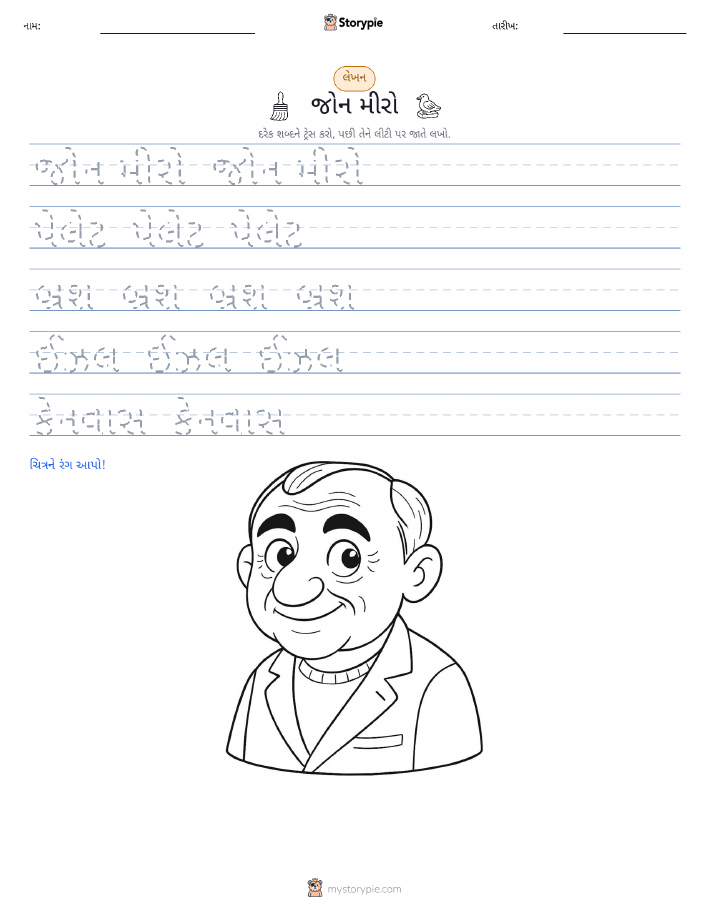 નામ: Storypie તારીખ:
લેખન
જોન મીરો
દરેક શબ્દને ટ્રેસ કરો, પછી તેને લીટી પર જાતે લખો.
જોન મીરો જોન મીરો
પેલેટ પેલેટ પેલેટ
બ્રશ બ્રશ બ્રશ બ્રશ
ઈઝલ ઈઝલ ઈઝલ
કેનવાસ કેનવાસ
ચિત્રને રંગ આપો!
mystorypie.com